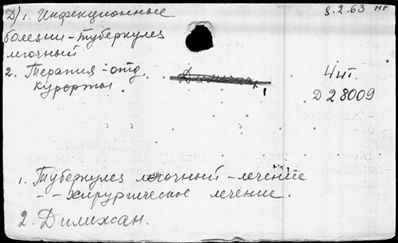 Д) 1. Инфекционные
болезни - туберкулез
легочный
2. Терапия - отд.
курорты.
8.2.63 нг
4 ит.
D 28009
1. Туберкулез легочный - лечение
- - хирургическое лечение.
2. Дилижан.